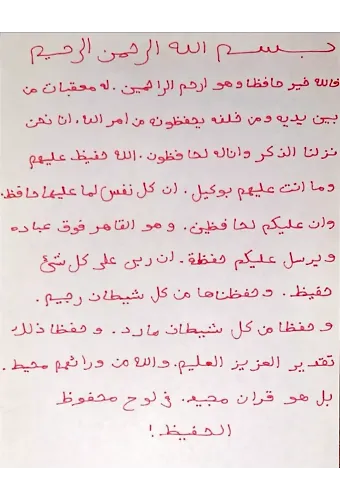 بسم الله الرحمن الرحيم
فالله خير حافظا وهو ارحم الراحمين. له معقبات من
بين يديه ومن خلفه يحفظونه من امر الله. انا نحن
نزلنا الذكر وانا له لحافظون. الله حفيظ عليهم
وما انت عليهم بوكيل. ان كل نفس لما عليها حافظ.
وان عليكم لحافظين. وهو القاهر فوق عباده
ويرسل عليكم حفظة. ان ربى على كل شئ
حفيظ. وحفظناها من كل شيطان رجيم.
وحفظا من كل شيطان مارد. وحفظا ذلك
تقدير العزيز العليم. والله من ورائهم محيط.
بل هو قران مجيد. فى لوح محفوظ
الحفيظ!